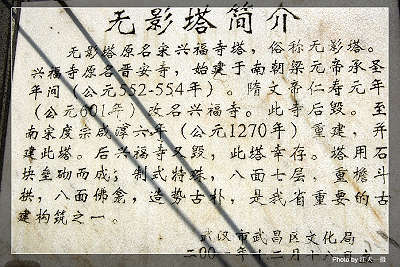 无影塔简介
无影塔原名宋兴福寺塔，俗称无影塔。
兴福寺原名晋安寺，始建于南朝梁元帝承圣
年间（公元552-554年）。隋文帝仁寿元年
（公元601年）改名兴福寺。此寺后毁。至
南宋度宗咸淳六年（公元1270年）重建，并
建此塔。后兴福寺又毁，此塔幸存。塔用石
块垒砌而成；制式特殊，八面七层，重檐斗
拱，八面佛龛，造势古朴，是我省重要的古
建构筑之一。
武汉市武昌区文化局
二00 年十二月十
Photo by 江天一揽